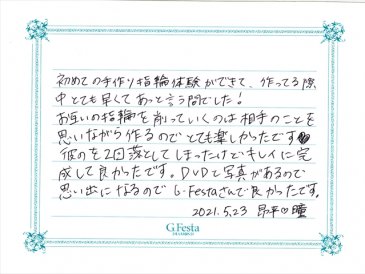 初めての手作り指輪体験ができて、作ってる際
中とても早くてあっと言う間でした!
お互いの指輪を削っていくのは相手のことを
思いながら作るのでとても楽しかったです♥
彼のを2回落としてしまったけどキレイに完
成して良かったです。DVDと写真があるので
思い出になるのでG-Festaさんで良かったです。
2021.5.23 昂平♡瞳
G.Festa
DIAMOND